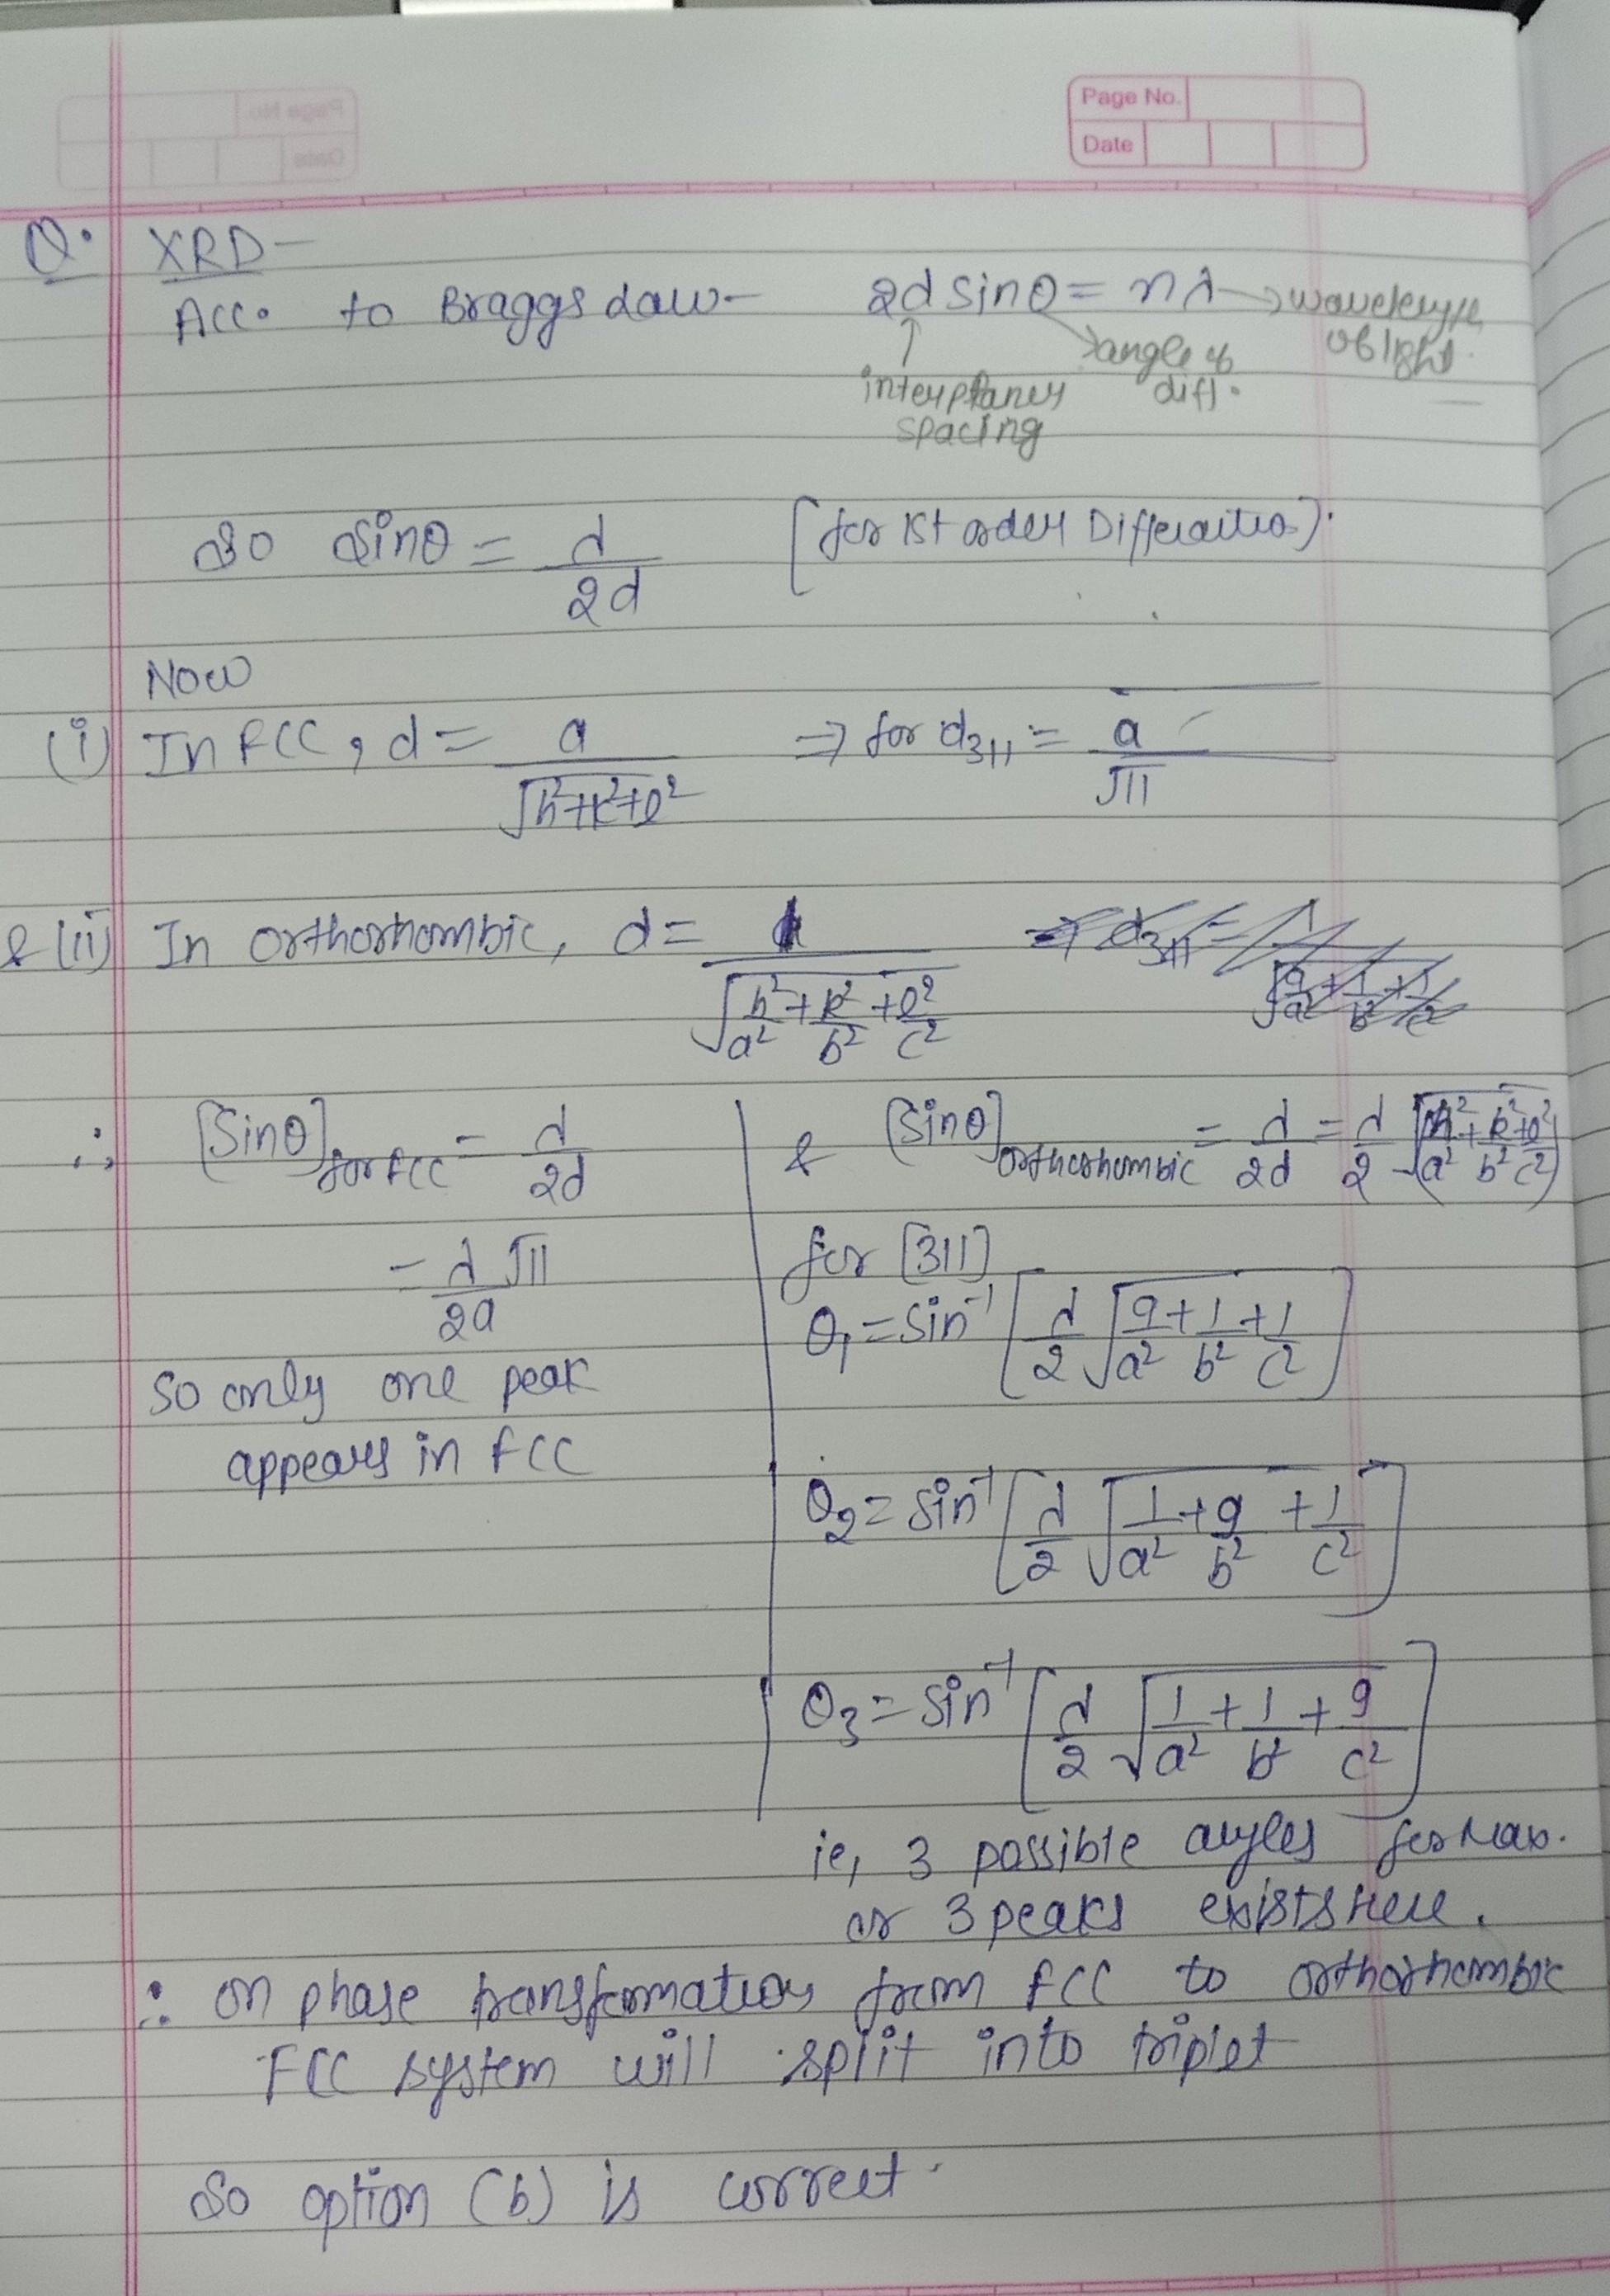 Page No.
Date
Q. XRD -
Acc. to Braggs Law - 2d sinθ = nλ → wavelength of light
interplaner spacing
angle of diff.
So sinθ = λ/2d [for 1st order Differaction]
Now
(i) In FCC, d = a/√(h²+k²+l²) ⇒ for d₃₁₁ = a/√11
& (ii) In orthorhombic, d = 1/√(h²/a² + k²/b² + l²/c²)
∴ [Sinθ] for FCC = λ/2d
= λ√11/2a
so only one peak
appears in FCC
& [Sinθ] orthorhombic = λ/2d = λ/2 √(h²/a² + k²/b² + l²/c²)
for [311]
θ₁ = sin⁻¹[λ/2 √(9/a² + 1/b² + 1/c²)]
θ₂ = sin⁻¹[λ/2 √(1/a² + 9/b² + 1/c²)]
θ₃ = sin⁻¹[λ/2 √(1/a² + 1/b² + 9/c²)]
ie, 3 possible angles for Max.
or 3 peaks exists Here.
∴ on phase transformation from FCC to orthorhombic
FCC system will split into triplet
So option (b) is correct.